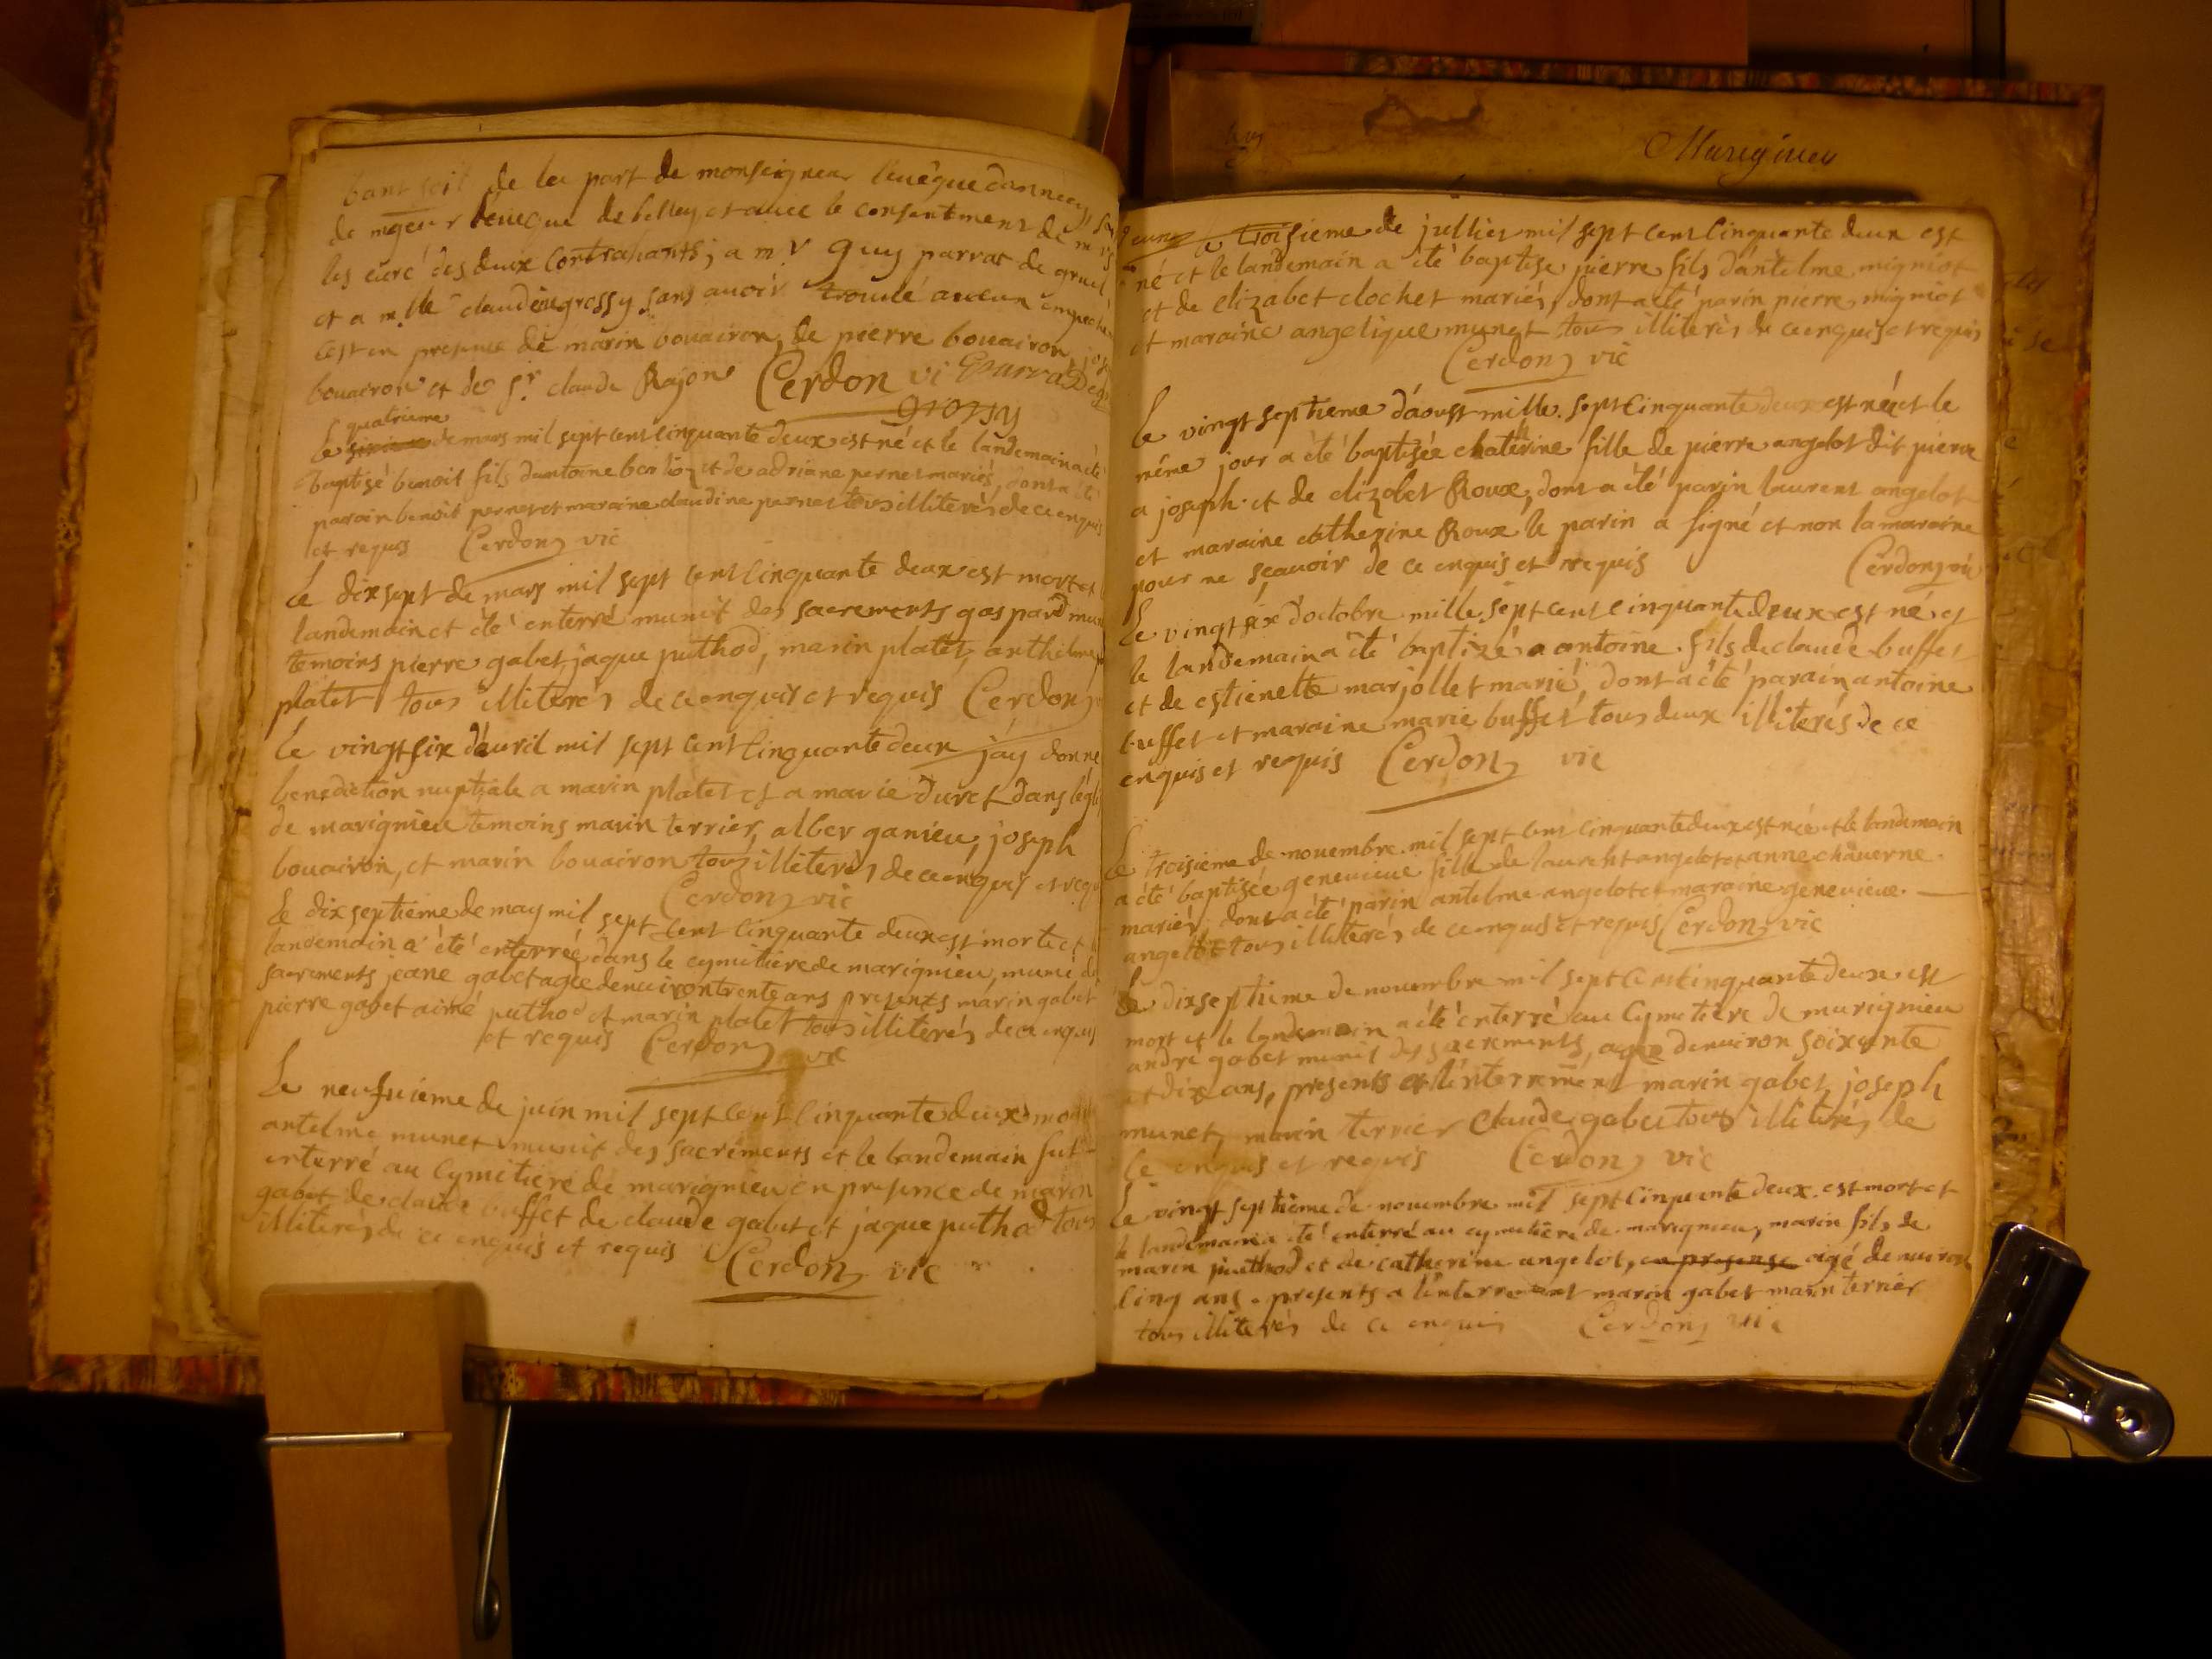 bans soit de la part de monseigneur l'evêque dannecy,
de mgeur l'eveque de belley et avec le consentement de
les curé des deux contrahants, a mr guy parrat de
et a mlle claudine grossy sans avoir trouvé aucun
cest en presence de marin bouairon, de pierre bouairon,
bouairon et de Sr. claude Rajon Cerdon vi
grossy
quatrieme
le de mars mil sept cent cinquante deux est né et le landemain a été
baptisé benoit fils dantoine et de adriane pernet mariés, dont a été
parain benoit pernet et maraine claudine pernet tous illiterés de ce enquis
et requis Cerdon vic
Le dix sept de mars mil sept cent cinquante deux est mort et
landemain et été enterré munit des sacrements gaspard
temoins pierre gabet, jaque puthod, marin platet, anthelme
platet tous illiterés de ce enquis et requis Cerdon
Le vingt six d'avril mil sept cent cinquante deux jáy donné
benediction nuptiale a marin platet et a marie duret dans
de marignieu temoins marin terrier, alber ganieu, joseph
bouairon, et marin bouairon tous illiterés de ce enquis et
Cerdon vic
Le dix septieme de may mil sept cent cinquante deux est morte et
landemain a été enterrée dans le cymitiere de marignieu, munie
sacrements jeane gabet agée denviron trente ans presents marin gabet
pierre gabet aimé puthod et marin platet tous illiterés de ce enquis
et requis Cerdon vic
Le neufvieme de juin mil sept cent cinquante deux
antelme munet munit des sacrements et le landemain fut
enterré au cymitiere de marignieu en presence de marin
gabet de claude buffet de claude gabet et jaque puthod tous
illiterés de ce enquis et requis
Cerdon vic
Marignieu
le troisieme de julliet mil sept cent cinquante deux est
né et le landemain a été baptisé pierre fils d'antelme migniot
et de elizabet clochet mariés, dont a été parin pierre migniot
et maraine angelique munet tous illiterés de ce enquis et requis
Cerdon vic
Le vingt septieme d'aoust mille sept cinquante deux est né et le
même jour a été baptisée chaterine fille de pierre angelot dit pierre
a joseph et de elizabet Roux, dont a été parin laurent angelot
et maraine catherine Roux le parin a signé et non la maraine
pour ne sçavoir de ce enquis et requis Cerdon vic
Le vingt six d'octobre mille sept cent cinquante deux est né et
le landemain a été baptizé antoine fils de claude buffet
et de estienette marjollet marié, dont a été parain antoine
buffet et maraine marie buffet tous deux illiterés de ce
enquis et requis Cerdon vic
Le troisieme de novembre mil sept cent cinquante deux est née et le landemain
a été baptisée genevieve fille de laurent angelot et anne chaverne
mariés, dont a été parin antelme angelot et maraine genevieve
angelot tous illiterés de ce enquis et requis Cerdon vic
Le dixseptieme de novembre mil sept cent cinquante deux est
mort et le landemain a été enterré au cymetiere de marignieu
andre gabet munit des sacrements, agé denviron soixante
et dix ans, presents a l'enterrement marin gabet, joseph
munet, marin terrier claude gabet tous illiterés de
ce enquis et requis Cerdon vic
Le vingt septieme de novembre mil sept cinquante deux est mort et
le landemain a été enterré au cymetiere de marignieu, marin fils de
marin puthod et de catherine angelot, en presense agé denviron
cinq ans. presents a l'enterrement marin gabet marin terrier
tous illiterés de ce enquis Cerdon vic